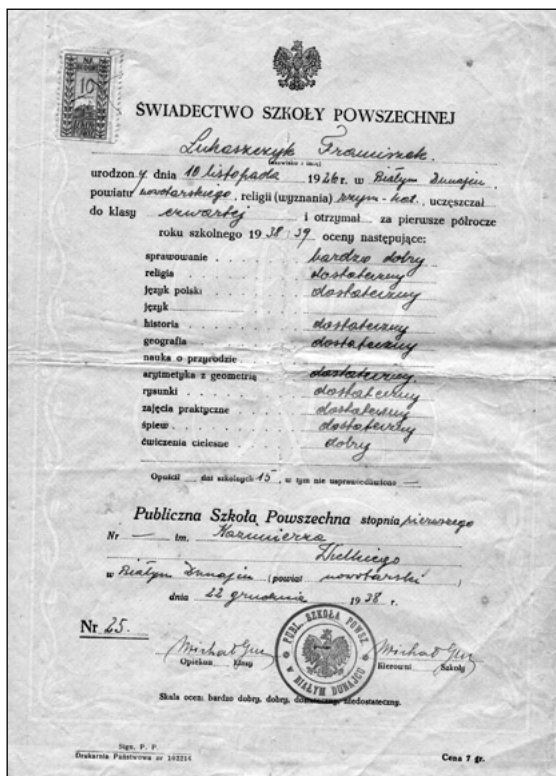 NA
10
ŚWIADECTWO SZKOŁY POWSZECHNEJ
Łukaszczyk Franciszek.
(nazwisko i imię)
urodzony dnia 10 listopada 1926 r. w Białym Dunajcu,
powiatu nowotarskiego, religii (wyznania) rzym-kat., uczęszczał
do klasy czwartej i otrzymał za pierwsze półrocze
roku szkolnego 1938/39 oceny następujące:
sprawowanie . . . . . bardzo dobry
religia . . . . . dostateczny
język polski . . . . . dostateczny
język . . . . .
historia . . . . . dostateczny
geografia . . . . . dostateczny
nauka o przyrodzie . . . . .
arytmetyka z geometrią . . dostateczny
rysunki . . . . . dostateczny
zajęcia praktyczne . . . . . dostateczny
śpiew . . . . . dostateczny
ćwiczenia cielesne . . . . . dobry
Opuścił dni szkolnych 15, w tym nie usprawiedliwiono —
Publiczna Szkoła Powszechna stopnia pierwszego
Nr — im. Kazimierza
Wielkiego
w Białym Dunajcu (powiat nowotarski)
dnia 22 grudnia 1938 r.
Nr 25.
PUBL. SZKOŁA POWSZ.
W BIAŁYM DUNAJCU
Michał Opiekun Klasy
Michał Kierownik Szkoły
Skala ocen: bardzo dobry, dobry, dostateczny, niedostateczny.
Sign. P. P.
Drukarnia Państwowa nr 102216
Cena 7 gr.